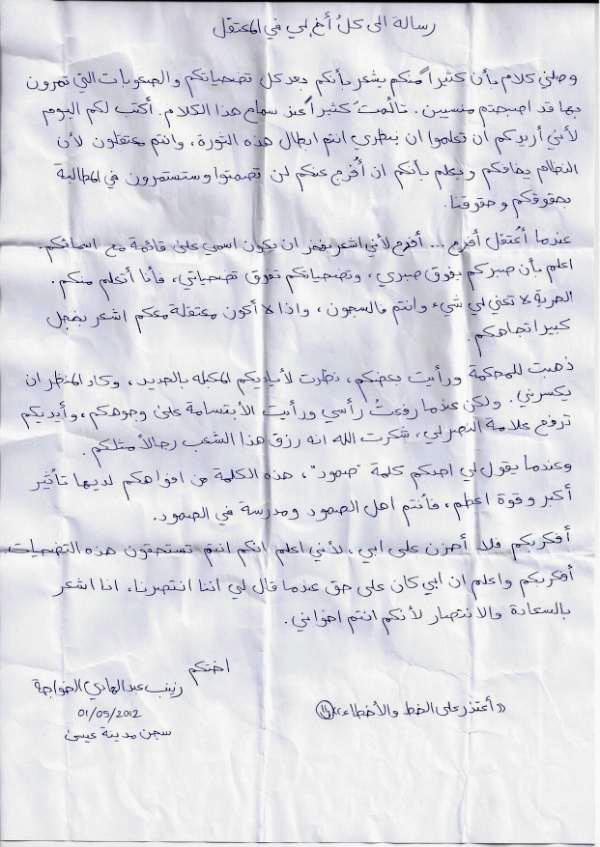 رسالة الى كل أخ لي في المعتقل
وصلني كلام بأن كثيراً منكم يشعر بأنكم بعد كل تضحياتكم والصعوبات التي تمرون
بها قد اصبحتم منسيين. تألمت كثيراً عند سماع هذا الكلام. أكتب لكم اليوم
لأني أريدكم ان تعلموا ان بنظري انتم ابطال هذه الثورة، وانتم معتقلون لأن
النظام يخافكم ويعلم بأنكم ان أُفرج عنكم لن تصمتوا وستستمرون في المطالبة
بحقوقكم وحقوقنا.
عندما أُعتقل أفرح ... أفرح لأني اشعر بفخر ان يكون اسمي على قائمة مع اسمائكم.
اعلم بأن صبركم يفوق صبري، وتضحياتكم تفوق تضحياتي، فأنا أتعلم منكم.
الحرية لا تعني لي شيء وانتم فالسجون، واذا لا أكون معتقلة معكم اشعر بخجل
كبير اتجاهكم.
ذهبت للمحكمة ورأيت بعضكم، نظرت لأياديكم المكبله بالحديد، وكاد المنظر ان
يكسرني. ولكن عندما رفعتُ رأسي ورأيت الأبتسامة على وجوهكم، وأيديكم
ترفع علامة النصر لي، شكرت الله انه رزق هذا الشعب رجالاً أمثلكم.
وعندما يقول لي احدكم كلمة "صمود"، هذه الكلمة من افواهكم لديها تأثير
أكبر وقوة اعظم، فأنتم اهل الصمود ومدرسة في الصمود.
أفكر بكم فلا أحزن على ابي، لأني اعلم انكم انتم تستحقون هذه التضحيات
أفكر بكم واعلم ان ابي كان على حق عندما قال لي اننا انتصرنا. انا اشعر
بالسعادة والانتصار لأنكم انتم اخواني.
اختكم
زينب عبدالهادي الخواجة
01/05/2012
سجن مدينة عيسى
«أعتذر على الخط والأخطاء»